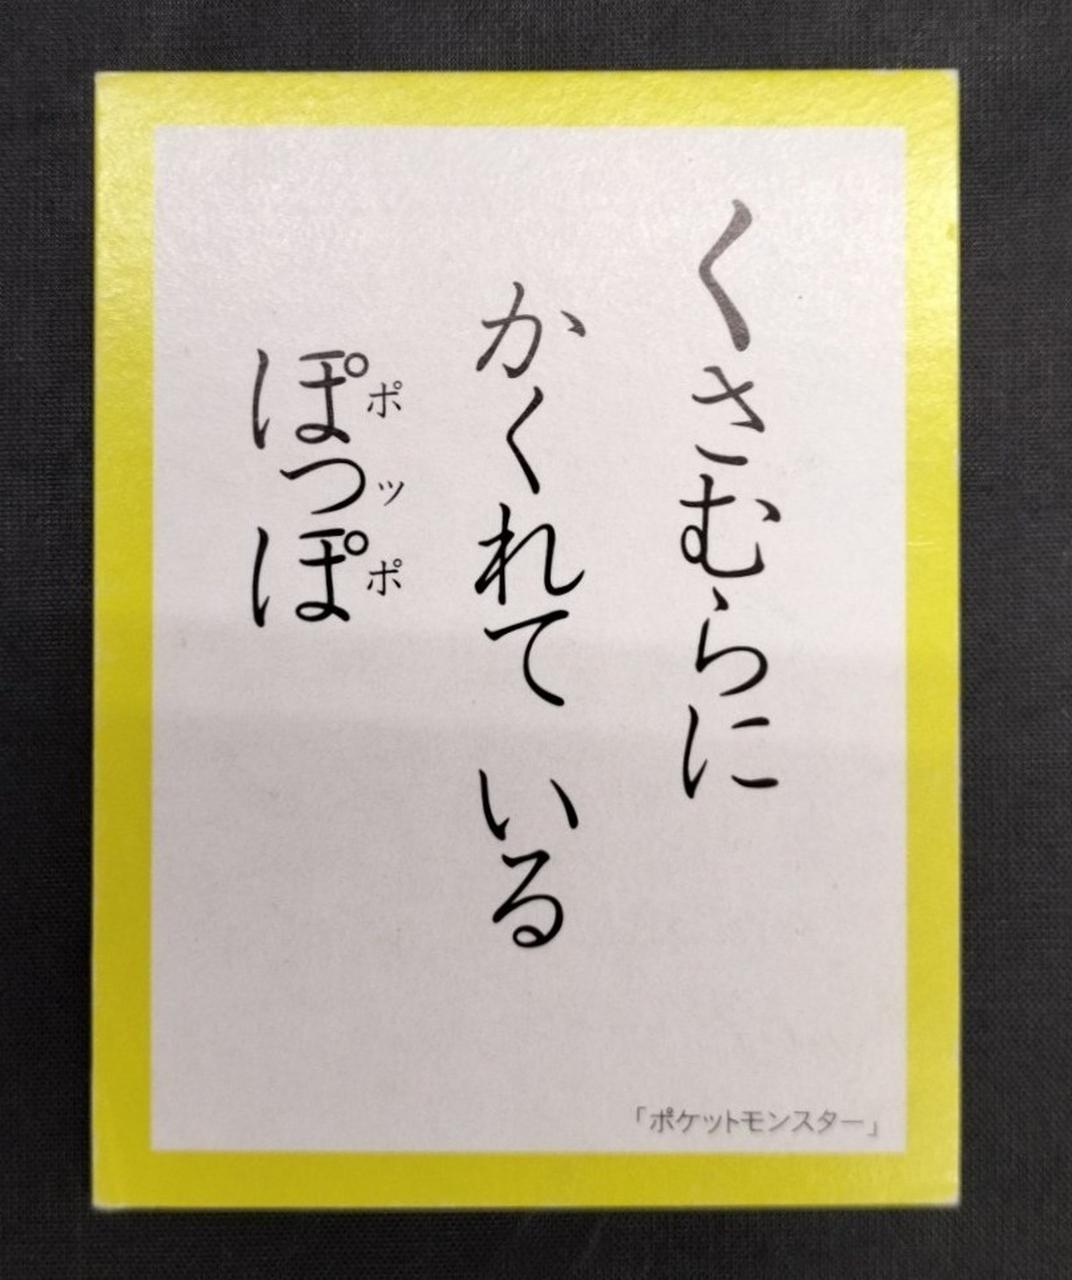 くさむらに
かくれて いる
ぽっぽ
ポッポ
「ポケットモンスター」